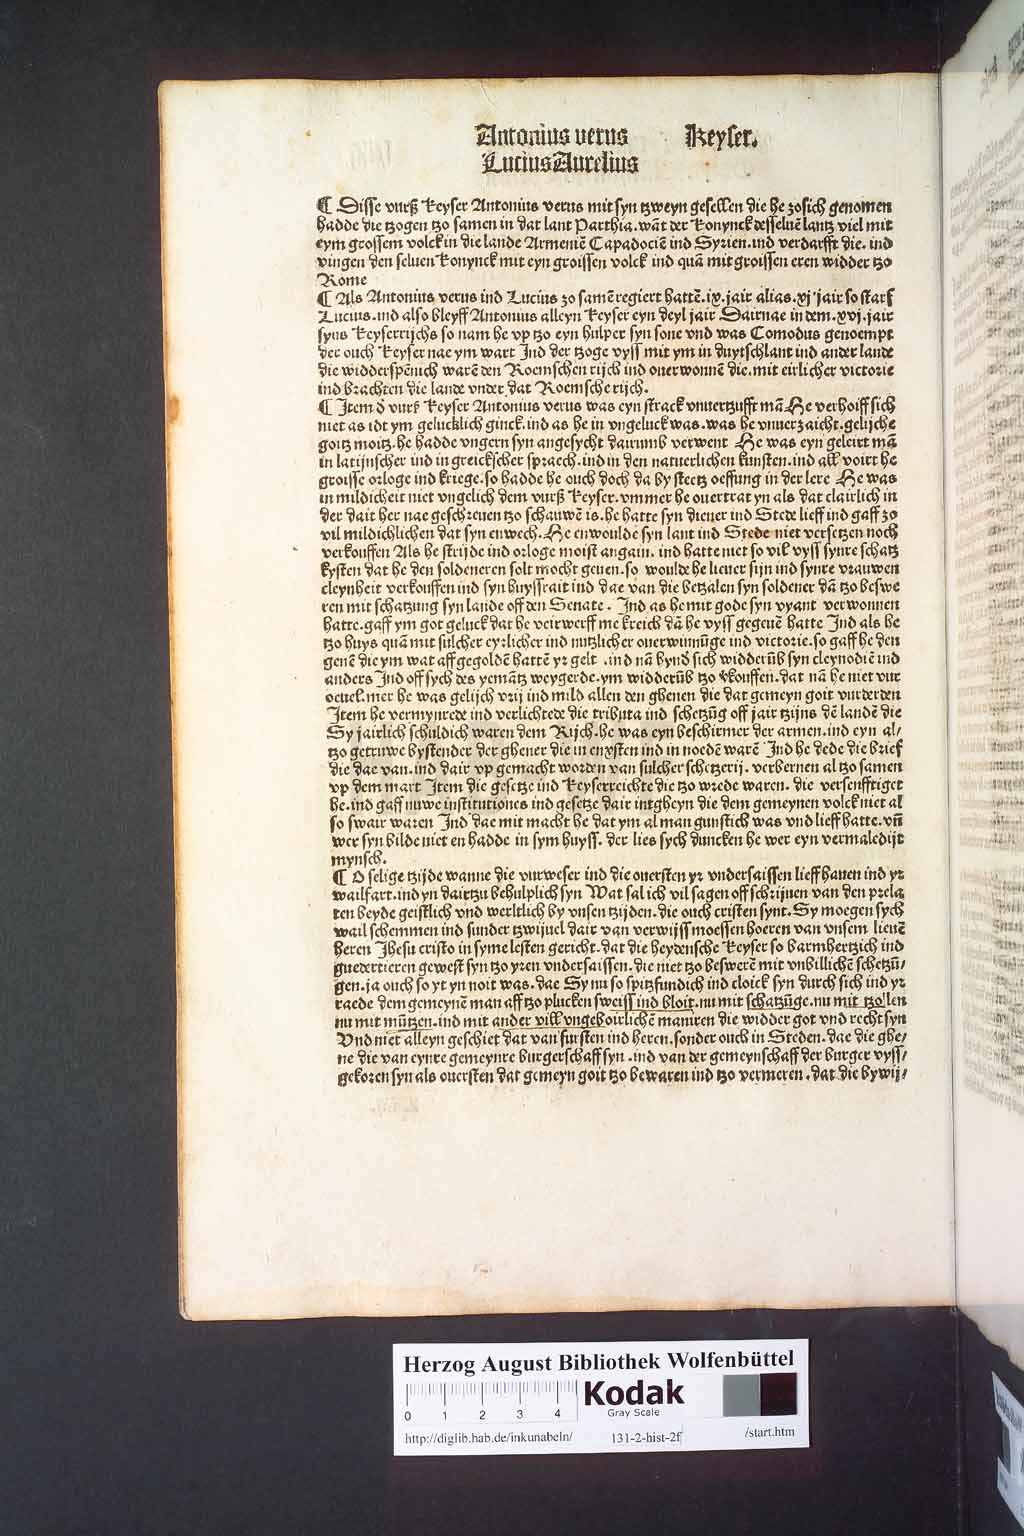 Antonius verus Keyser.
Lucius Aurelius
¶ Disse vurß keyser Antonius verus mit syn tzweyn gesellen die he zosich genomen
hadde die tzogen tzo samen in dat lant Parthia. wāt der konynck desseluē lantz viel mit
eym grossem volck in die lande Armeniē Capadociē ind Syrien. ind verdarfft die. ind
vingen den seluen konynck mit eyn groissen volck ind quā mit groissen eren widder tzo
Rome
¶ Als Antonius verus ind Lucius zo samē regiert hattē. ix. jair alias. xj jair so starf
Lucius. ind also bleyff Antonius alleyn keyser eyn deyl jair Dairnae in dem. xvj. jair
syns keyserrijchs so nam he vp tzo eyn hulper syn sone vnd was Comodus genoempt
der ouch keyser nae ym wart Ind der tzoge vyss mit ym in duytschlant ind ander lande
die widderspēnich warē den Roemschen rijch ind ouerwonnē die. mit eirlicher victorie
ind brachten die lande vnder dat Roemsche rijch.
¶ Item ď vurß keyser Antonius verus was eyn strack vnuertzufft mā He verhoiff sich
niet as idt ym gelucklich ginck. ind as he in vngeluck was. was he vnuerzaicht. gelijche
goitz moitz. he hadde vngern syn angesycht dairumb verwent He was eyn geleirt mā
in latijnscher ind in greickscher spraech. ind in den natuerlichen kunsten. ind all voirt he
groisse orloge ind kriege. so hadde he ouch doch da by steetz oeffung in der lere He was
in mildicheit niet vngelich dem vurß keyser. vmmer he ouertrat yn als dat clairlich in
der dait her nae geschreuen tzo schauwē is. he hatte syn diener ind Stede lieff ind gaff zo
vil mildichlichen dat syn enwech. He enwoulde syn lant ind Stede niet versetzen noch
verkouffen Als he strijde ind orloge moist angain. ind hatte niet so vil vyss synre schatz
kysten dat he den soldeneren solt mocht geuen. so woulde he lieuer sijn ind synre vrauwen
cleynheit verkouffen ind syn huyssrait ind dae van die betzalen syn soldener dā tzo beswe
ren mit schatzung syn lande off den Senate. Ind as he mit gode syn vyant verwonnen
hatte. gaff ym got geluck dat he veirwerff me kreich dā he vyss gegeuē hatte Ind als he
tzo huys quā mit sulcher eyrlicher ind nutzlicher ouerwinnūge ind victorie. so gaff he den
genē die ym wat aff gegoldē hattē yr gelt. ind nā hynď sich widderūb syn cleynodiē ind
anders Ind off sych des yemātz weygerde. ym widderūb tzo vkouffen. dat nā he niet vur
oeuel. mer he was gelijch vrij ind mild allen den ghenen die dat gemeyn goit vurderden
Item he vermynrede ind verlichtede die tributa ind schetzūg off jair tzijns dē landē die
Sy jairlich schuldich waren dem Rijch. he was eyn beschirmer der armen. ind eyn al/
tzo getruwe bystender der ghener die in enxsten ind in noedē warē Ind he dede die brief
die dae van. ind dair vp gemacht worden van sulcher schetzerij. verbernen al tzo samen
vp dem mart Item die gesetze ind keyserreichte die tzo wrede waren. die versenfftiget
he. ind gaff nuwe institutiones ind gesetze dair intgheyn die dem gemeynen volck niet al
so swair waren Ind dae mit macht he dat ym al man gunstich was vnd lieff hatte. vñ
wer syn bilde niet en hadde in sym huyss. der lies sych duncken he wer eyn vermaledijt
mynsch.
¶ O selige tzijde wanne die vurweser ind die ouersten yr vndersaissen lieff hauen ind yr
wailfart. ind yn dairtzu behulplich syn Wat sal ich vil sagen off schrijuen van den prela
ten beyde geistlich vnd werltlich by vnsen tzijden. die ouch cristen synt. Sy moegen sych
wail schemmen ind sunder tzwijuel dair van verwijss moessen hoeren van vnsem lieuē
heren Jhesu cristo in syme lesten gericht. dat die heydensche keyser so barmhertzich ind
guedertieren gewest syn tzo yren vndersaissen. die niet tzo beswerē mit vnbillichē schetzū/
gen. ja ouch so yt yn noit was. dae Sy nu so spitzfundich ind cloick syn durch sich ind yr
raede dem gemeynē man aff tzo plucken sweiss ind bloit. nu mit schatzūge. nu mit tzollen
nu mit mūtzen. ind mit ander vill vngehoirlichē maniren die widder got vnd recht syn
Vnd niet alleyn geschiet dat van fursten ind heren. sonder ouch in Steden. dae die ghe/
ne die van eynre gemeynre burgerschaff syn. ind van der gemeynschaff der burger vyss/
gekoren syn als ouersten dat gemeyn goit tzo bewaren ind tzo vermeren. dat die bywij/
Herzog August Bibliothek Wolfenbüttel
0 1 2 3 4
Kodak
Gray Scale
http://diglib.hab.de/inkunabeln/ 131-2-hist-2f /start.htm